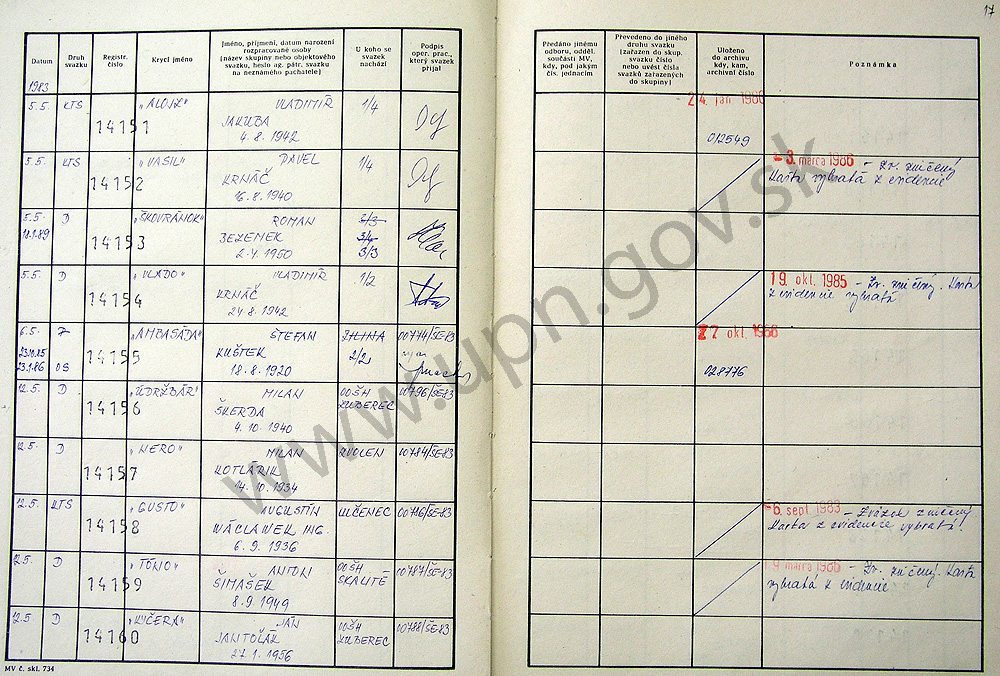 17
Datum
Druh svazku
Registr. číslo
Krycí jméno
Jméno, příjmení, datum narození
rozpracované osoby
(název skupiny nebo objektového
svazku, heslo ag. pátr. svazku
na neznámého pachatele)
U koho se
svazek
nachází
Podpis
oper. prac.,
který svazek
přijal
Předáno jinému
odboru, odděl.
součásti MV,
kdy, pod jakým
čís. jednacím
Převedeno do jiného
druhu svazku
(zařazen do skup.
svazku číslo
nebo uvést čísla
svazků zařazených
do skupiny)
Uloženo
do archivu
kdy, kam,
archivní číslo
Poznámka
1983
5.5. KTS 14151 „ALOJZ“ VLADIMÍR 1/4
JAKUBA
4. 8. 1942
24. jan 1986
012549
5.5. KTS 14152 „VASIL“ PAVEL 1/4
KRNÁČ
16. 8. 1940
- 3. marca 1986 - Zv. zničený
Karta vybratá z evidencie
5.5. D 14153 „ŠKOVRÁNOK“ ROMAN 3/3
18.1.89 BEZEMEK 3/4
2. 4. 1950 3/3
5.5. D 14154 „VLADO“ VLADIMÍR 1/2
KRNÁČ
24. 8. 1942
19. okt. 1985 - Zv. zničený. Karta
z evidencie vybratá
6.5. 14155 „AMBASÁDA“ ŠTEFAN ŽILINA 00774/ŠE-83
23.10.85 KUŠTEK 2/2
23.1.86 OS 18. 8. 1920
27 okt. 1986
028776
12.5. D 14156 „ÚDRŽBÁR“ MILAN OOŠH 00796/ŠE-83
ŠKERDA ZUBEREC
4. 10. 1940
12.5. D 14157 „NERO“ MILAN ZVOLEN 00784/ŠE-83
KOTLÁRIK
14. 10. 1934
12.5. KTS 14158 „GUSTO“ AUGUSTÍN LUČENEC 00716/ŠE-83
WÁCLAWEK ING.
6. 9. 1936
- 6. sept. 1983 - Zväzok zničený
Karta z evidencie vybratá!
12.5. D 14159 „TÓNO“ ANTON OOŠH 00787/ŠE-83
ŠIMAŠEK SKALITÉ
8. 9. 1949
19 marca 1986 - Zv. zničený. Karta
vybratá z evidencie
12.5. D 14160 „KUČERA“ JÁN OOŠH 00788/ŠE-83
JANTOŠÁK ZUBEREC
27. 1. 1956
MV č. skl. 734
www.upn.gov.sk